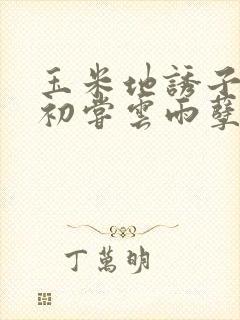 玉米地誘子
初嘗雲雨孽
丁萬明